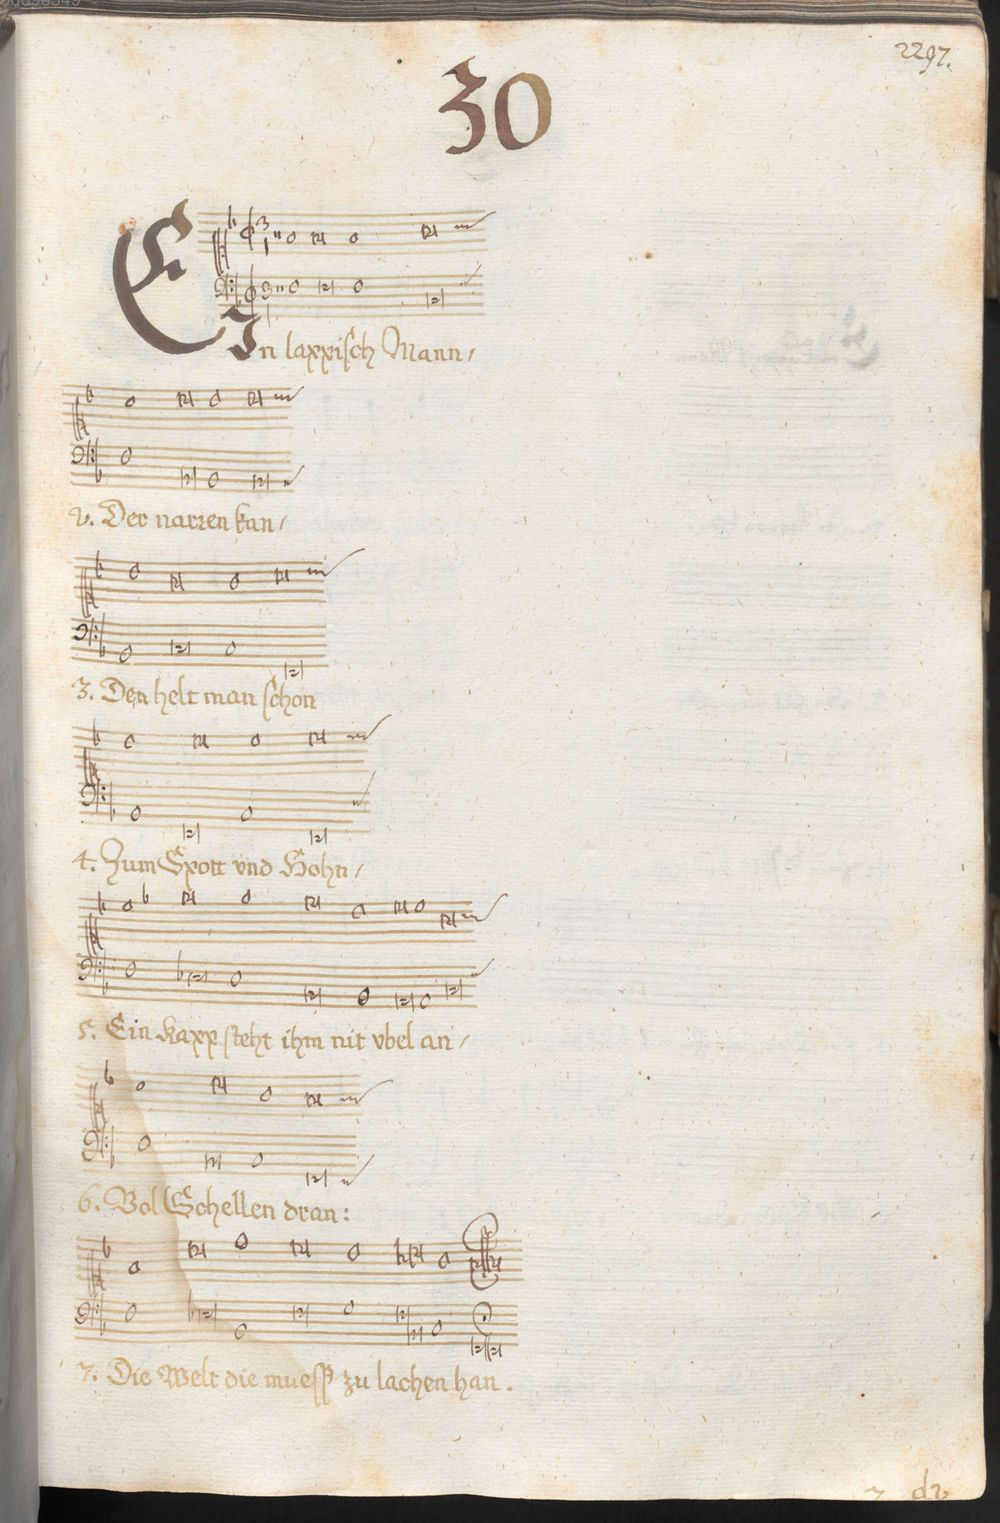 2297.
30
EIn lappisch Mann/
2. Der narren kan/
3. Den helt man schon
4. Zum Spott vnd Hohn/
5. Ein Kapp steht ihm nit vbel an/
6. Vol Schellen dran:
7. Die Welt die muess zu lachen han.